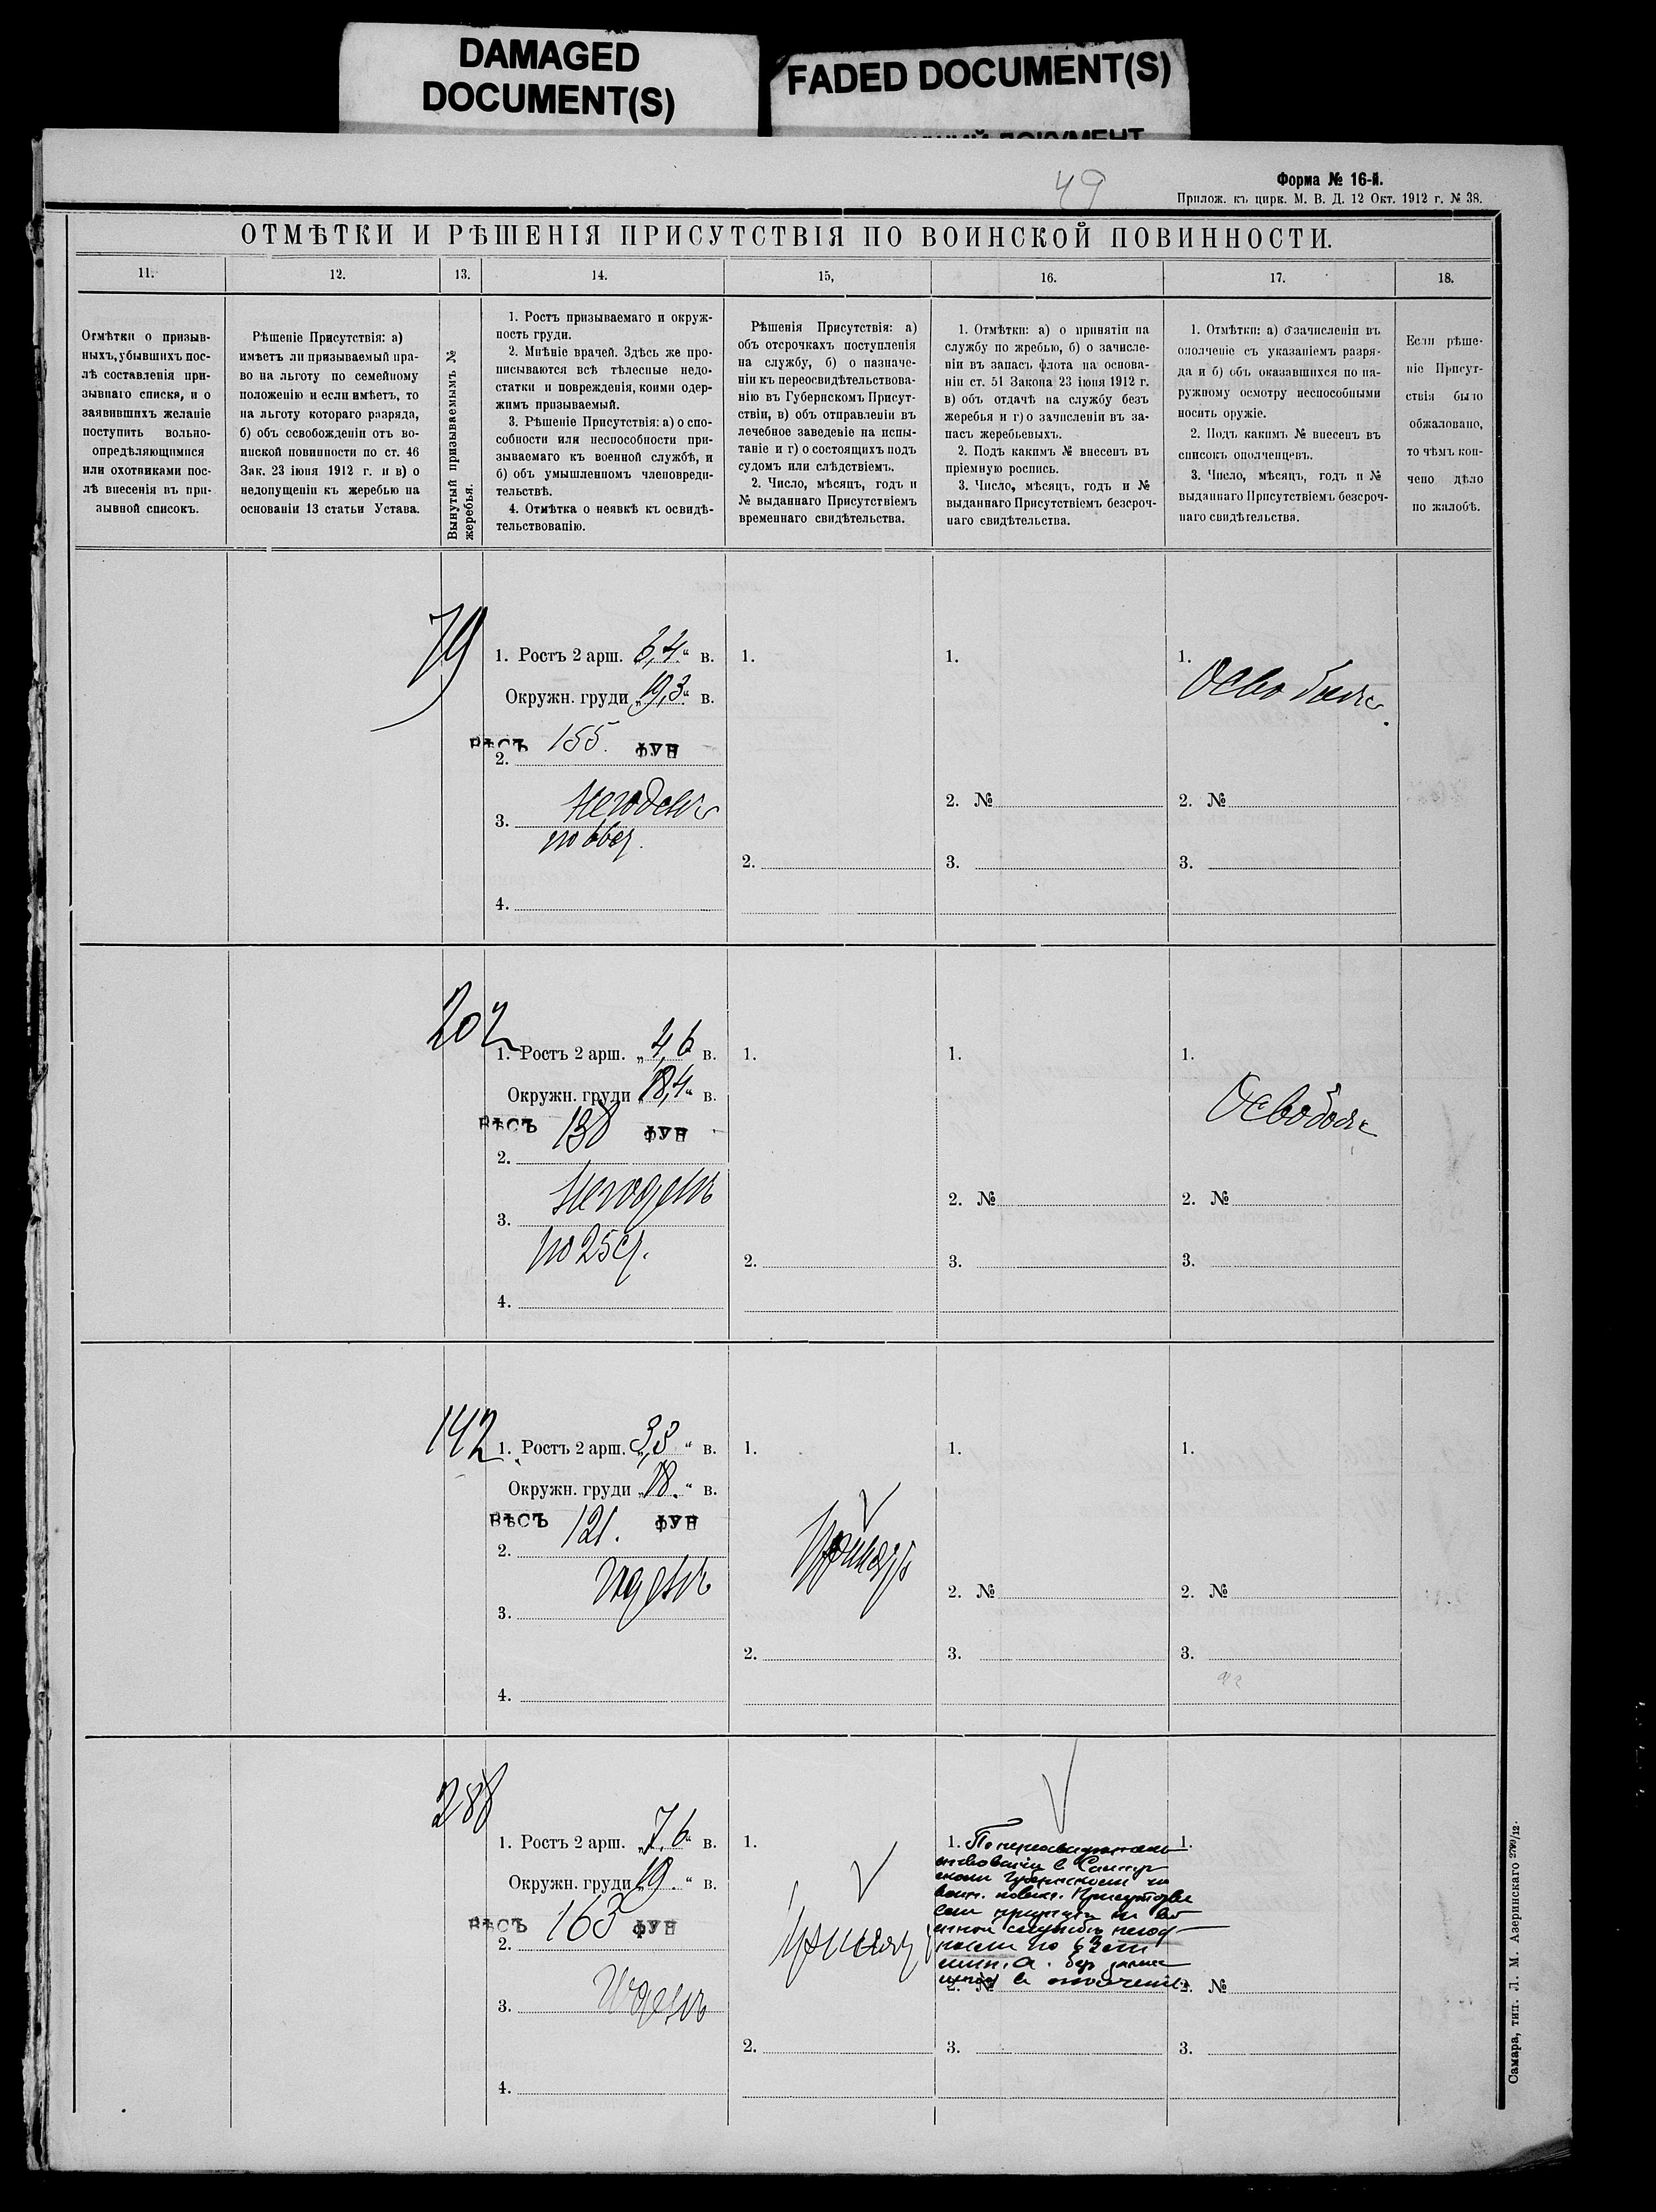 DAMAGED
DOCUMENT(S)
FADED DOCUMENT(S)
49
Форма № 16-й.
Прилож. къ цирк. М. В. Д. 12 Окт. 1912 г. № 38.
ОТМѢТКИ И РѢШЕНІЯ ПРИСУТСТВІЯ ПО ВОИНСКОЙ ПОВИННОСТИ.
11. 12. 13. 14. 15, 16. 17. 18.
Отмѣтки о призыв-
ныхъ, убывшихъ пос-
лѣ составленія при-
зывнаго списка, и о
заявившихъ желаніе
поступить вольно-
опредѣляющимися
или охотниками пос-
лѣ внесенія въ при-
зывной списокъ.
Рѣшеніе Присутствія: а)
имѣетъ ли призываемый пра-
во на льготу по семейному
положенію и если имѣетъ, то
на льготу котораго разряда,
б) объ освобожденіи отъ во-
инской повинности по ст. 46
Зак. 23 іюня 1912 г. и в) о
недопущеніи къ жеребью на
основаніи 13 статьи Устава.
Вынутый призываемымъ №
жеребья.
1. Ростъ призываемаго и окруж-
ность груди.
2. Мнѣніе врачей. Здѣсь же про-
писываются всѣ тѣлесные недо-
статки и поврежденія, коими одер-
жимъ призываемый.
3. Рѣшеніе Присутствія: а) о спо-
собности или неспособности при-
зываемаго къ военной службѣ, и
б) объ умышленномъ членовреди-
тельствѣ.
4. Отмѣтка о неявкѣ къ освидѣ-
тельствованію.
Рѣшенія Присутствія: а)
объ отсрочкахъ поступленія
на службу, б) о назначе-
ніи къ переосвидѣтельствова-
нію въ Губернскомъ Присут-
ствіи, в) объ отправленіи въ
лечебное заведеніе на испы-
таніе и г) о состоящихъ подъ
судомъ или слѣдствіемъ.
2. Число, мѣсяцъ, годъ и
№ выданнаго Присутствіемъ
временнаго свидѣтельства.
1. Отмѣтки: а) о принятіи на
службу по жребью, б) о зачисле-
ніи въ запасъ флота на основа-
ніи ст. 51 Закона 23 іюня 1912 г.
в) объ отдачѣ на службу безъ
жеребья и г) о зачисленіи въ за-
пасъ жеребьевыхъ.
2. Подъ какимъ № внесенъ въ
пріемную роспись.
3. Число, мѣсяцъ, годъ и №
выданнаго Присутствіемъ безсроч-
наго свидѣтельства.
1. Отмѣтки: а) о зачисленіи въ
ополченіе съ указаніемъ разря-
да и б) объ оказавшихся по на-
ружному осмотру неспособными
носить оружіе.
2. Подъ какимъ № внесенъ въ
списокъ ополченцевъ.
3. Число, мѣсяцъ, годъ и №
выданнаго Присутствіемъ безсроч-
наго свидѣтельства.
Если рѣше-
ніе Присут-
ствія было
обжаловано,
то чѣмъ кон-
чено дѣло
по жалобѣ.
79
1. Ростъ 2 арш. „6,4“ в. 1. 1. 1.
Окружн. груди „19,3“ в. Освобожд.
ВѢСЪ 155. ФУН
2.
Негоденъ 2. № 2. №
3.
2. 3. 3.
4.
202
1. Ростъ 2 арш. „4,6 в. 1. 1. 1.
Окружн. груди „18,4“ в. Освобожд
ВѢСЪ 138 ФУН
2.
Негоденъ 2. № 2. №
3.
по 25 ст.
2. 3. 3.
4.
142
1. Ростъ 2 арш. „3,3“ в. 1. 1. 1.
Окружн. груди „18.“ в.
ВѢСЪ 121. ФУН
2.
Годенъ 2. № 2. №
3.
2. 3. 3.
4.
288
1. Ростъ 2 арш. „7,6“ в. 1. 1. По переосвидѣтель 1.
ствованіи в Самар
Окружн. груди „19.“ в. скомъ Губернскомъ по
воин. повин. Присутстві
ВѢСЪ 163 ФУН
2.
Годенъ 2. № 2. №
3.
2. 3. 3.
4.
Самара, тип. Л. М. Азеринскаго 2799/12.